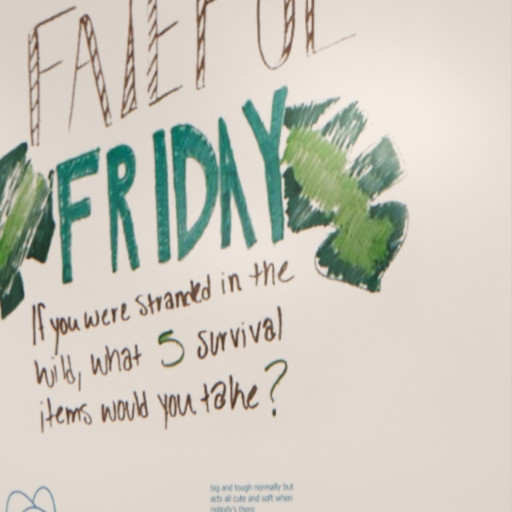 FATEFUL
FRIDAY
If you were stranded in the
wild, what 5 survival
items would you take?
big and tough normally but
acts all cute and soft when
nobody's there